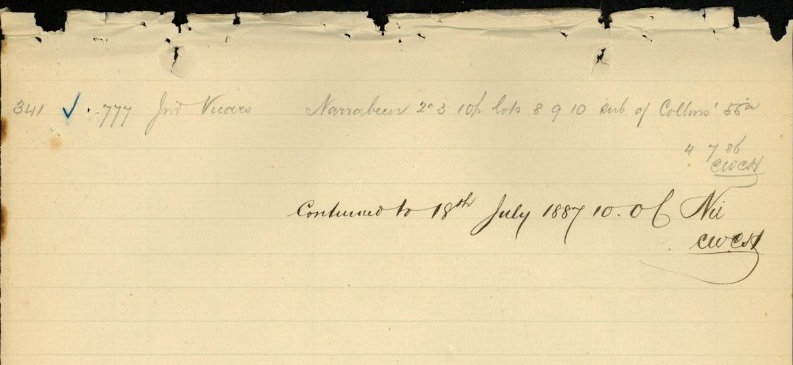 341 ✓ . 777 Jno Vicars Narrabeen 2a 3 10p lots 8 9 10 Sub of Collins' 55a
4 7 86
CWCH
Continued to 18th July 1887 10. 0 6 Nil
CWCH